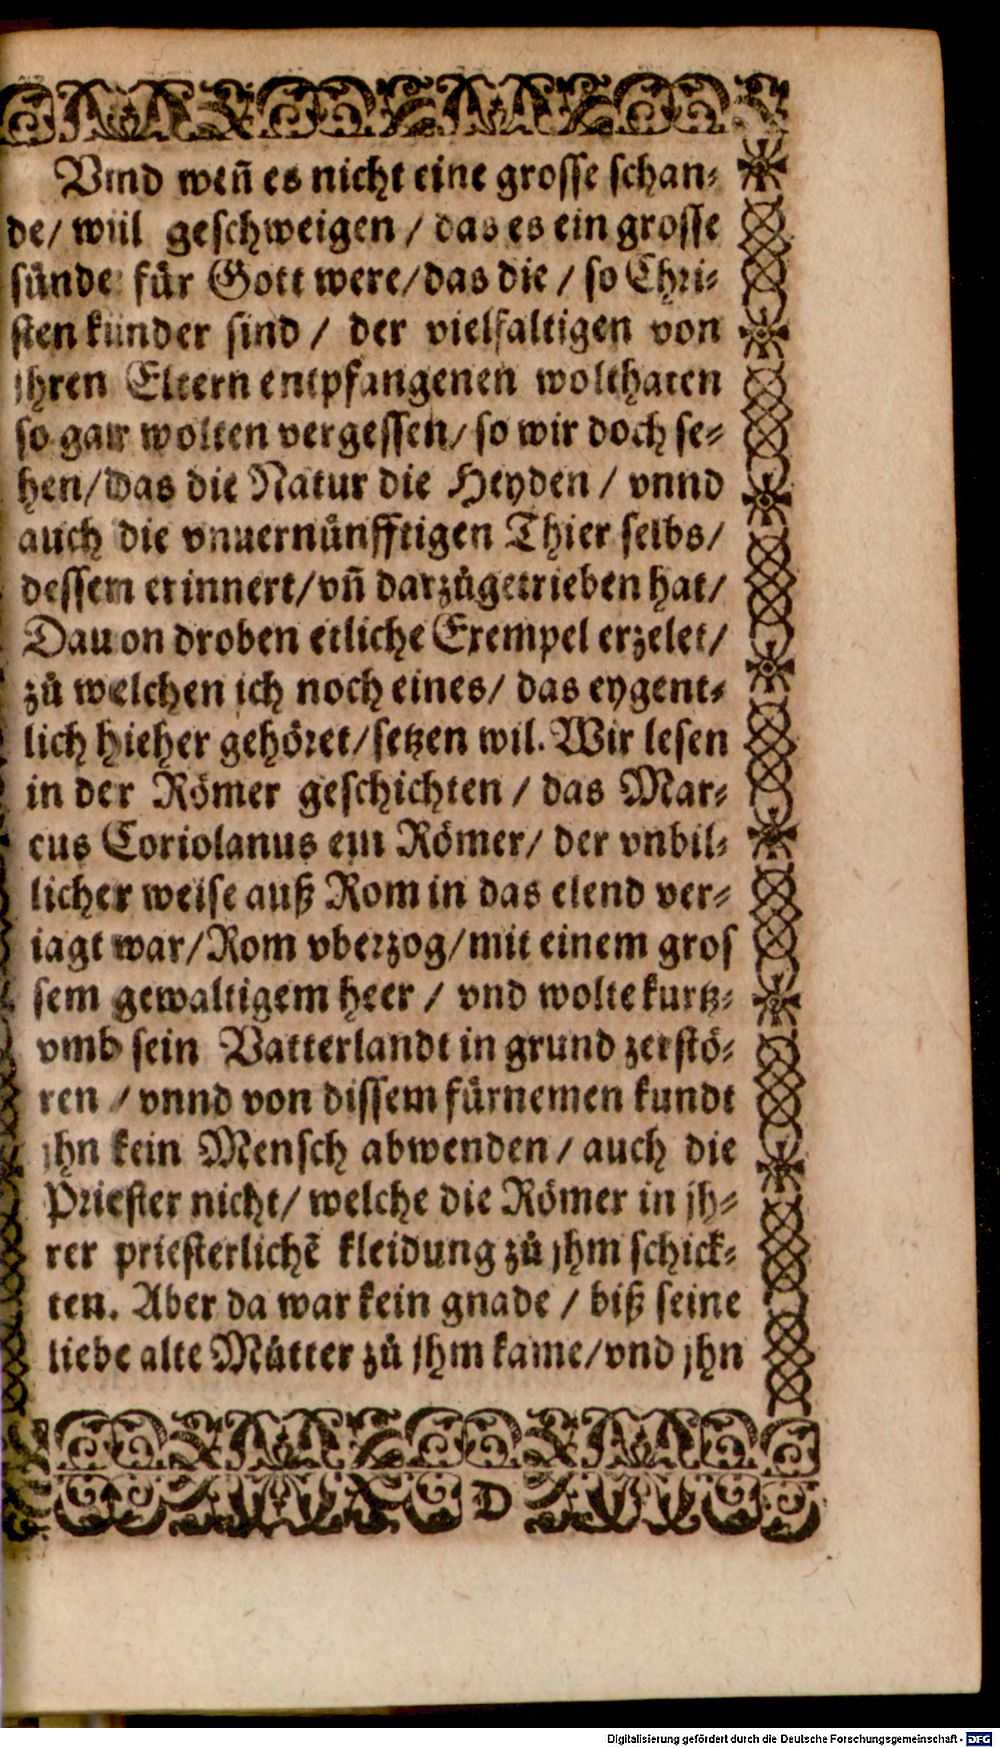 Vnnd weñ es nicht eine grosse schan-
de/ wiil geschweigen / das es ein grosse
sünde für Gott were/das die / so Chri-
sten kinder sind / der vielfaltigen von
jhren Eltern entpfangenen wolthaten
so gar wolten vergessen/ so wir doch se-
hen/das die Natur die Heyden / vnnd
auch die vnuernünfftigen Thier selbs/
dessem erinnert/vñ darzů getrieben hat/
Dauon droben etliche Exempel erzelet/
zů welchen ich noch eines/ das eygent-
lich hieher gehöret/setzen wil. Wir lesen
in der Römer geschichten / das Mar-
cus Coriolanus ein Römer/ der vnbil-
licher weise auß Rom in das elend ver-
iagt war/Rom vberzog/mit einem gros
sem gewaltigem heer / vnd wolte kurtz-
vmb sein Vatterlandt in grund zerstö-
ren / vnnd von dissem fürnemen kundt
jhn kein Mensch abwenden / auch die
Priester nicht/ welche die Römer in jh-
rer priesterlichẽ kleidung zů jhm schick-
ten. Aber da war kein gnade / biß seine
liebe alte Můtter zů jhm kame/vnd jhn
D
Digitalisierung gefördert durch die Deutsche Forschungsgemeinschaft - DFG